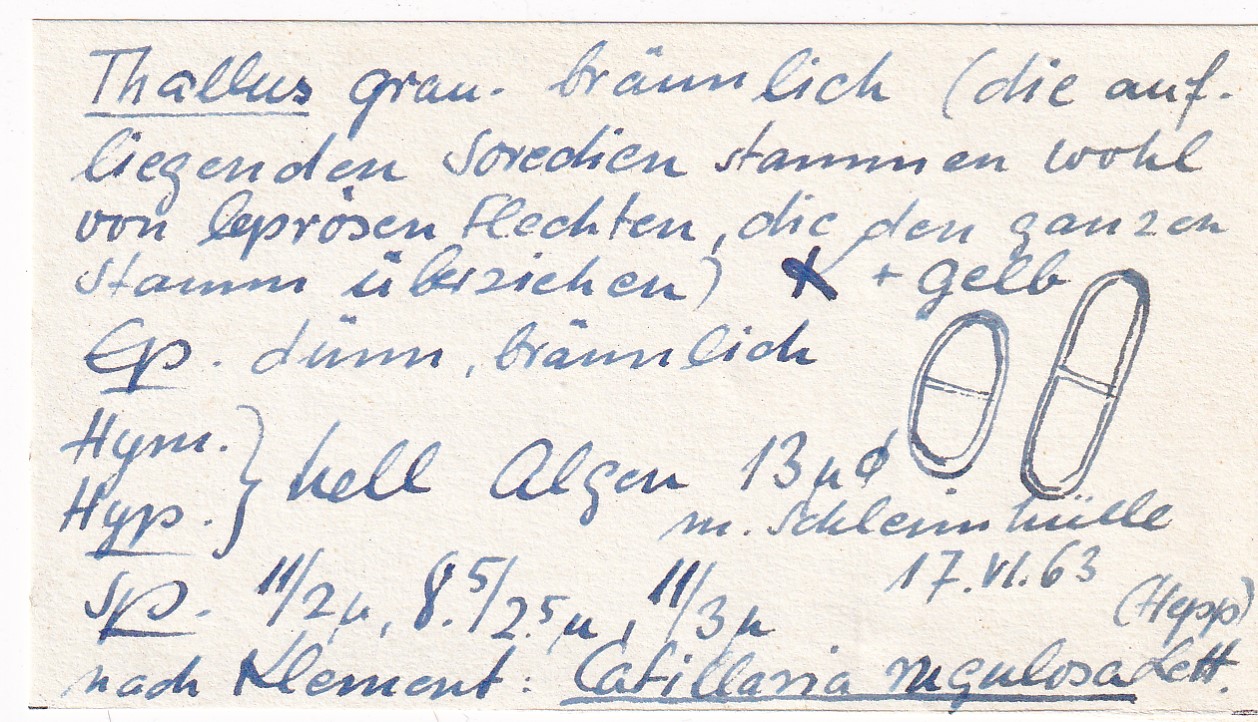 Thallus grau-bräunlich (die auf-
liegenden Soredien stammen wohl
von leprösen Flechten, die den ganzen
Stamm überziehen) K + gelb
Ep. dünn, bräunlich
Hym. } hell Algen 13 µ ø
Hyp. } m. Schleimhülle
Sp. 11/2 µ, 8.5/2.5 µ, 11/3 µ 17.VI.63
nach Klement: Catillaria rugulosa (Hepp) Lett.